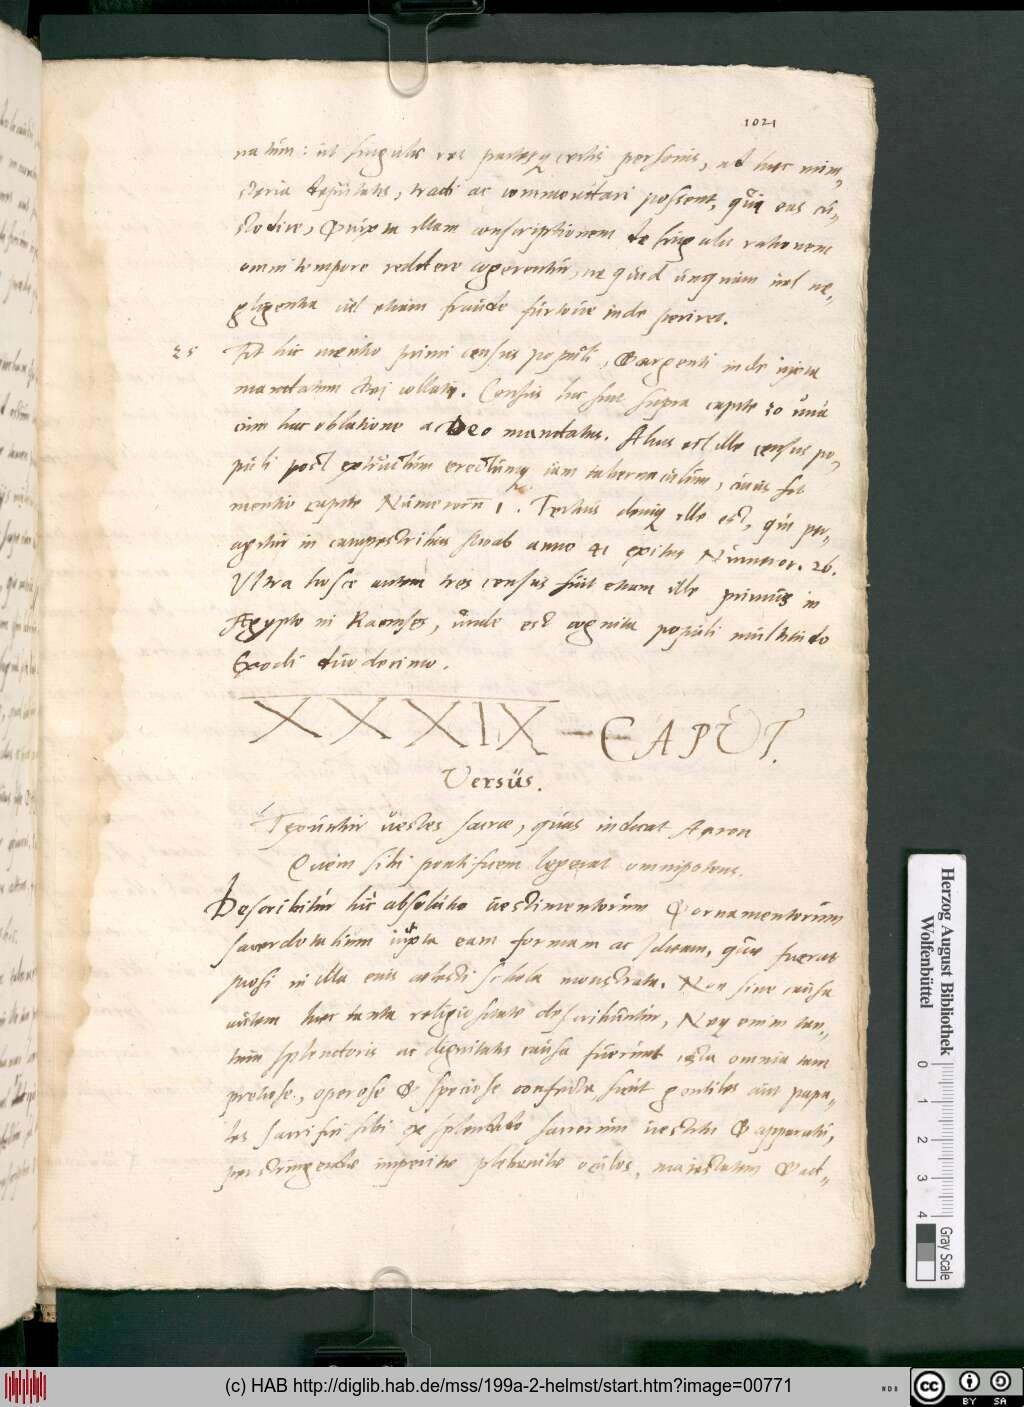 1021
natum: ut singulae res partesq̃ certis personis, ad haec mini„
steria deputatis, tradi ac commendari possent, qui eas cu„
stodire, & iuxta illam conscriptionem de singulis rationem
omni tempore reddere cogerentur, ne quid unquam uel ne„
gligentia uel etiam fraude furtoue inde periret.
25 Fit hic mentio primi census populi, & argenti inde iuxta
mandatum dej collati. Census hic fuit supra capite 30 una
cum hac oblatione a Deo mandatus. Alius est ille census po„
puli post extructum erectumq̃ iam tabernaculum, cuius fit
mentio capite Numerorũ 1. Tertius deniq̃ ille est, qui per„
agitur in campestribus Moab anno 41 exitus Numeror. 26.
Vltra hosce autem tres census fuit etiam ille primus in
Aegypto in Raemses, unde est cognita populi multitudo
Exodi duodecimo.
XXXIX CAPUT.
Versus.
Texuntur uestes sacrae, quas induat Aaron
Quem sibi pontificem legerat omnipotens.
Describitur hic absolutio uestimentorum & ornamentorum
sacerdotalium iuxta eam formam ac Ideam, quae fuerat
Mosi in illa eius coelesti schola monstrata. Non sine causa
autem haec tanta religiositate describuntur, Neq̃ enim tan„
tum splendoris ac dignitatis causa fuerunt ista omnia tam
preciose, operose & speciose confecta sicut gentiles aut papa„
les sacrifici sibi ex splendido sacrorum uestitu & apparatu,
perstringentes imperitae plebeculae oculos, maiestatem & act„
Herzog August Bibliothek
Wolfenbüttel
0 1 2 3 4
Gray Scale
(c) HAB http://diglib.hab.de/mss/199a-2-helmst/start.htm?image=00771
cc BY SA